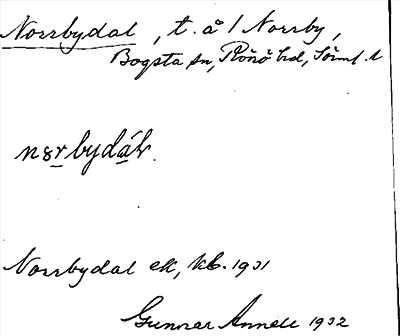 Norrbydal, t. å 1 Norrby,
Bogsta sn, Rönö hd, Sörml. l
Norrbydal ek, kb. 1931
Gunnar Annell 1932